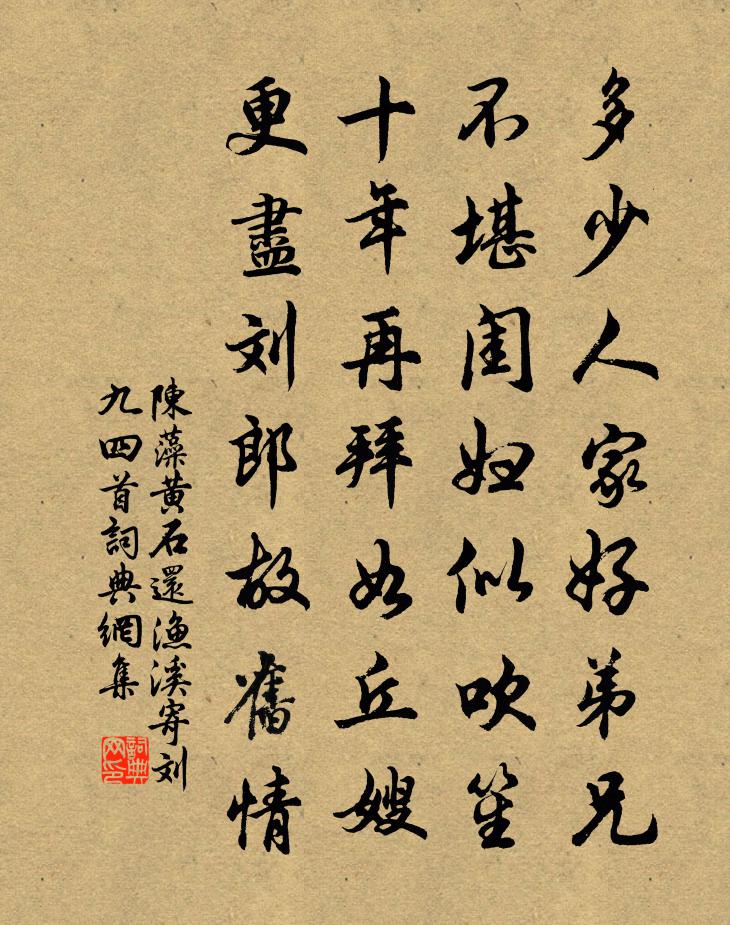 多少人家好弟兄
不堪閨婦似吹笙
十年再拜如丘嫂
更盡刘郎故舊情
陳藻黄石還漁溪寄刘
九四首詞典網集
詞典
网印